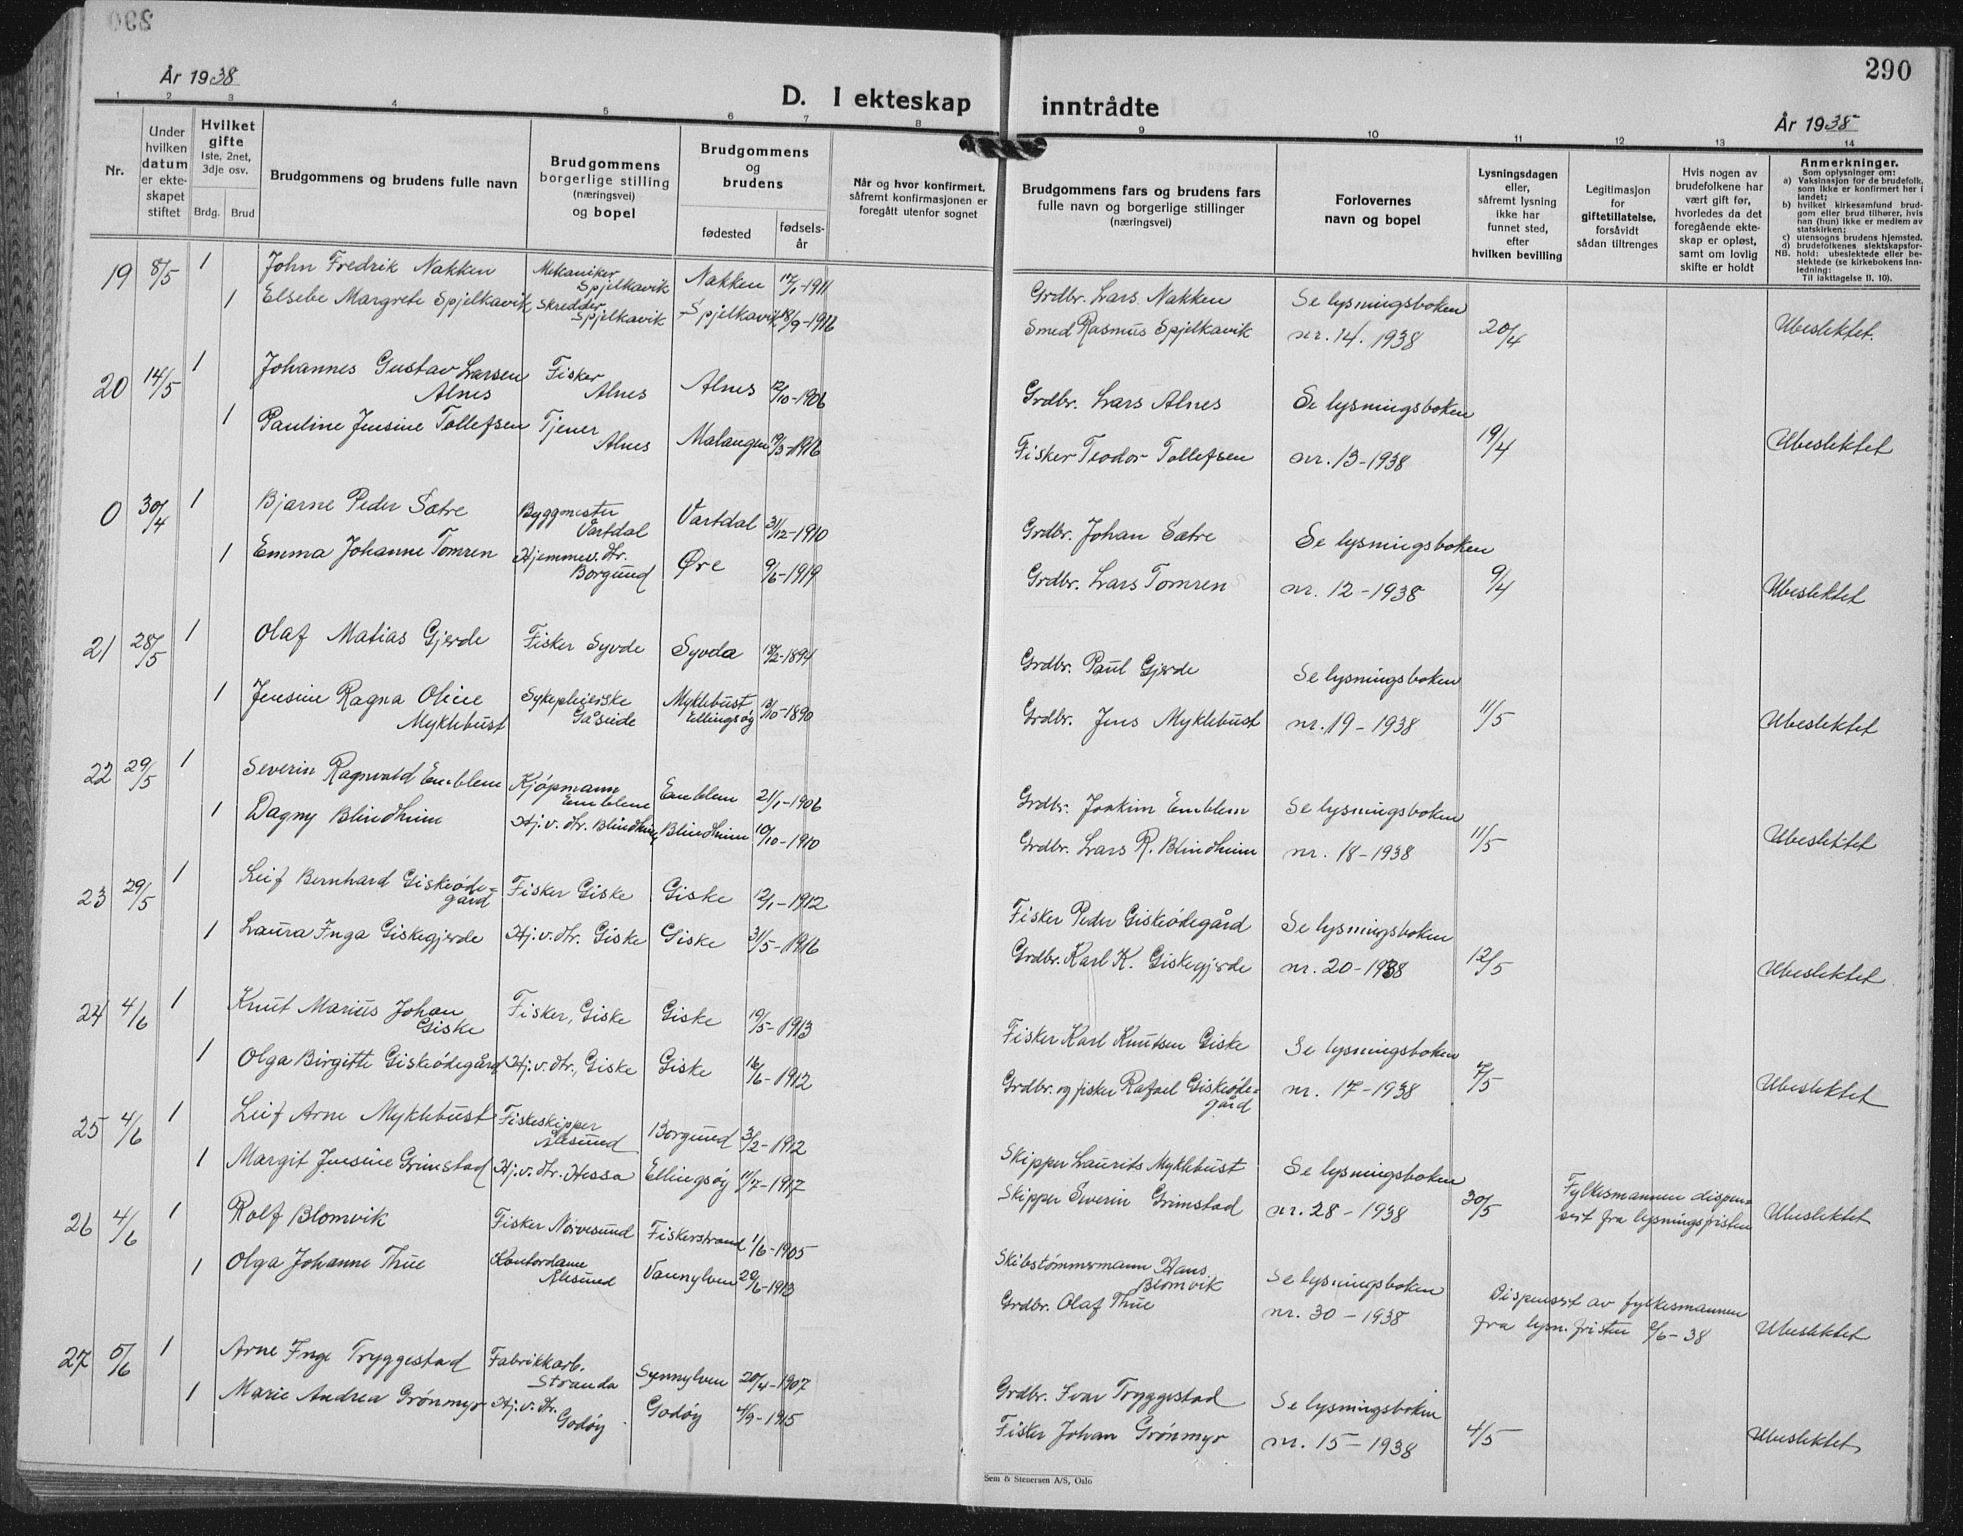 290
År 1938
D. I ekteskap inntrådte
År 1938
1 2 3 4 5 6 7 8 9 10 11 12 13 14
Nr.
Under hvilken datum er ekteskapet stiftet
Hvilket gifte 1ste, 2net, 3dje osv.
Brdg. Brud
Brudgommens og brudens fulle navn
Brudgommens borgerlige stilling (næringsvei) og bopel
Brudgommens og brudens
fødested
fødselsår
Når og hvor konfirmert, såfremt konfirmasjonen er foregått utenfor sognet
Brudgommens fars og brudens fars fulle navn og borgerlige stillinger (næringsvei)
Forlovernes navn og bopel
Lysningsdagen eller, såfremt lysning ikke har funnet sted, efter hvilken bevilling
Legitimasjon for giftetillatelse, forsåvidt sådan tiltrenges
Hvis nogen av brudefolkene har vært gift før, hvorledes da det foregående ekteskap er opløst, samt om lovlig skifte er holdt
Anmerkninger.
Som oplysninger om:
a) Vaksinasjon for de brudefolk, som ikke er konfirmert her i landet;
b) hvilket kirkesamfund brudgom eller brud tilhører, hvis han (hun) ikke er medlem av statskirken;
c) utensogns brudens hjemsted.
d) brudefolkenes slektskapsforhold: ubeslektede eller beslektede (se kirkebokens innledning:
NB. Til iakttagelse II. 10).
19 8/5 1 John Fredrik Nakken Mekaniker Spjelkavik Nakken 17/1-1911 Grdbr. Lars Nakken Se lysningsboken
1 Elsebe Margrete Spjelkavik Skredder Spjelkavik Spjelkavik 18/9-1916 Smed Rasmus Spjelkavik nr. 14. 1938 20/4 Ubeslektet.
20 14/5 1 Johannes Gustav Larsen Alnes Fisker Alnes Alnes 12/10-1906 Grdbr. Lars Alnes Se lysningsboken
1 Pauline Jensine Tollefsen Tjener Alnes Malangen 19/3-1916 Fisker Teodor Tollefsen nr. 13-1938 19/4 Ubeslektet
0 30/4 1 Bjarne Peder Sætre Byggmester Vartdal Vartdal 31/12-1910 Grdbr. Johan Sætre Se lysningsboken
1 Emma Johanne Tomren Hjemmev. dtr. Borgund Øre 9/6-1919 Grdbr. Lars Tomren nr. 12-1938 9/4 Ubeslektet
21 28/5 1 Olaf Matias Gjerde Fisker Syvde Syvda 18/2-1894 Grdbr. Paul Gjerde Se lysningsboken
1 Jensine Ragna Oline Myklebust Sykepleierske Gåseide Myklebust Ellingsøy 13/10-1890 Grdbr. Jens Myklebust nr. 19-1938 11/5 Ubeslektet
22 29/5 1 Severin Ragnvald Emblem Kjøpmann Emblem Emblem 21/1-1906 Grdbr. Joakim Emblem Se lysningsboken
1 Dagny Blindheim Hj.v. dtr. Blindheim Blindheim 10/10-1910 Grdbr. Lars R. Blindheim nr. 18-1938 11/5 Ubeslektet
23 29/5 1 Leif Bernhard Giskeødegård Fisker Giske Giske 12/1-1912 Fisker Peder Giskeødegård Se lysningsboken
1 Laura Inga Giskegjerde Hj.v. dtr. Giske Giske 31/5-1916 Grdbr. Karl K. Giskegjerde nr. 20-1938 12/5 Ubeslektet
24 4/6 1 Knut Marius Johan Giske Fisker, Giske Giske 19/5-1913 Fisker Karl Knutsen Giske Se lysningsboken
1 Olga Birgitte Giskeødegård Hj.v. dtr., Giske Giske 16/6-1912 Grdbr. og fisker Rafael Giskeødegård nr. 17-1938 7/5 Ubeslektet
25 4/6 1 Leif Arne Myklebust Fiskeskipper Ålesund Borgund 3/2-1912 Skipper Laurits Myklebust Se lysningsboken
1 Margit Jensine Grimstad Hj.v. dtr. Hessa Ellingsøy 11/7-1917 Skipper Severin Grimstad nr. 28-1938 30/5 Fylkesmannen dispensert fra lysningsfristen Ubeslektet
26 4/6 1 Rolf Blomvik Fisker Nørvesund Fiskerstrand 1/6-1905 Skibstømmermann Hans Blomvik Se lysningsboken
1 Olga Johanne Thue Kontordame Ålesund Vannylven 20/6-1913 Grdbr. Olaf Thue nr. 30-1938 Dispensert av fylkesmannen fra lysn. fristen 2/6-38 Ubeslektet
27 5/6 1 Arne Inge Tryggestad Fabrikkarb. Stranda Synnylven 20/4-1907 Grdbr. Ivar Tryggestad Se lysningsboken
1 Marie Andrea Grönmyr Hj.v. dtr. Godøy Godøy 4/9-1915 Fisker Johan Grönmyr nr. 15-1938 4/5 Ubeslektet
Sem & Stenersen A/S, Oslo